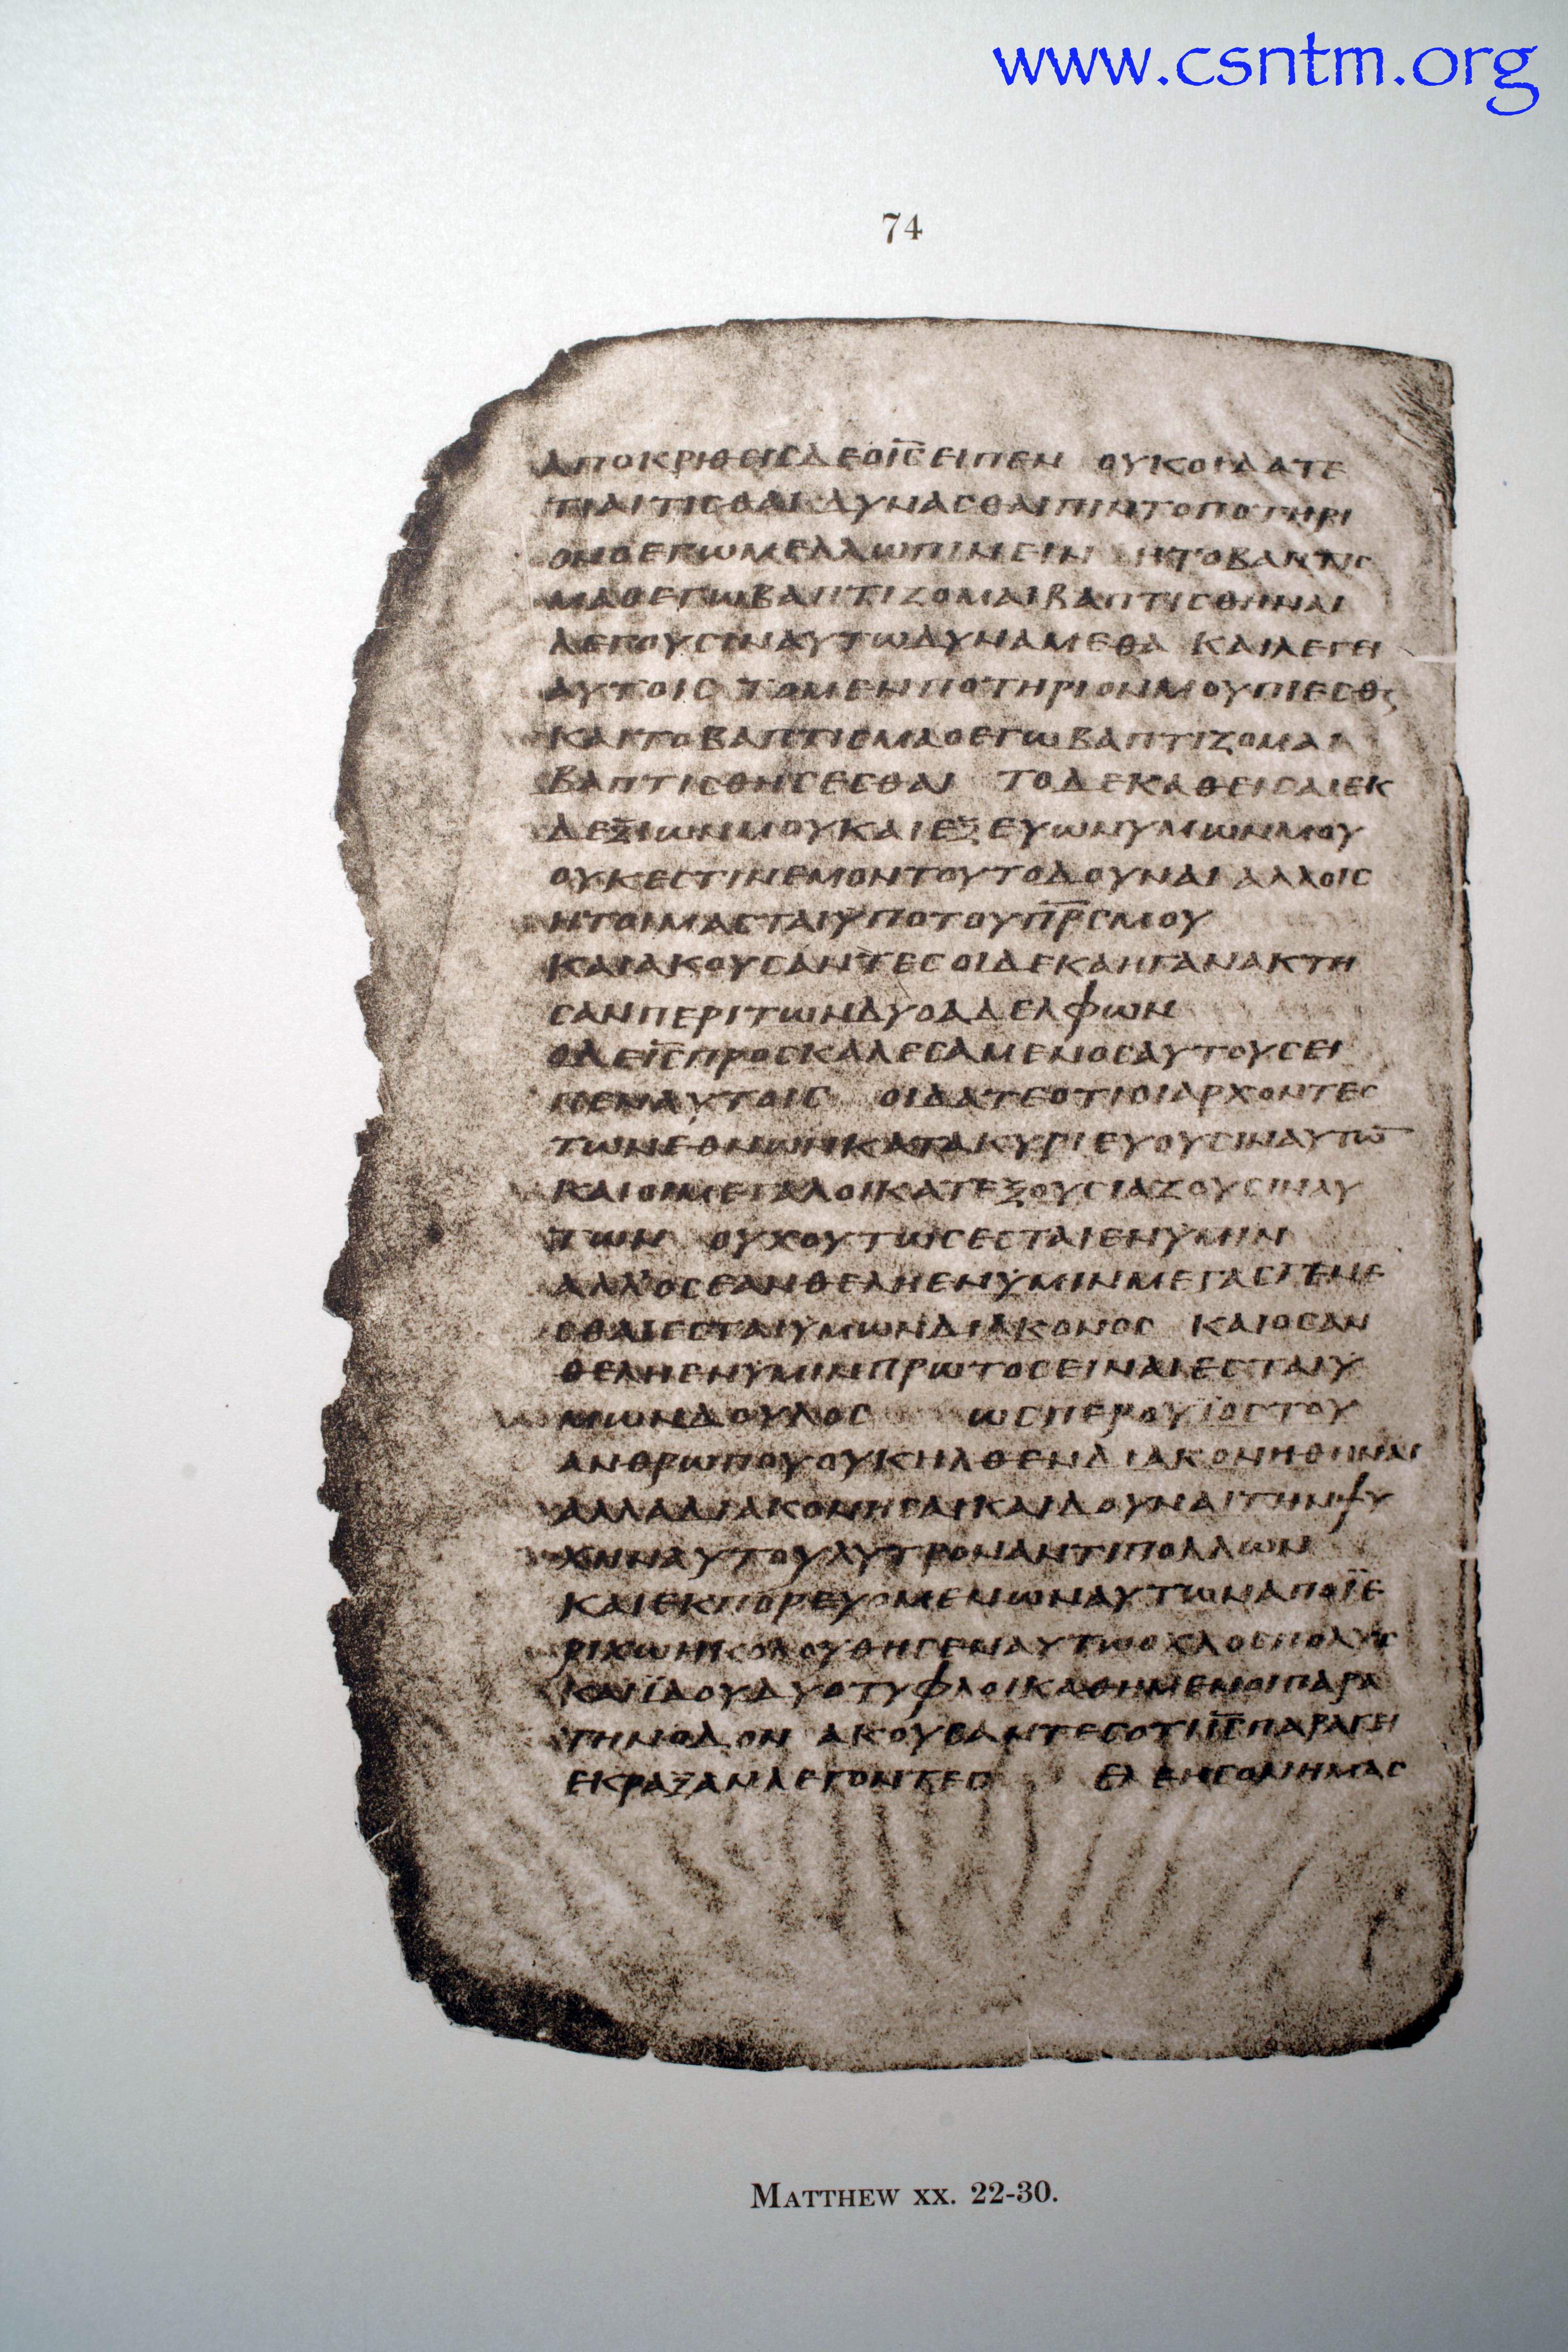 www.csntm.org
74
ΑΠΟΚΡΙΘΕΙCΔΕΟΙ̅C̅ΕΙΠΕΝ ΟΥΚΟΙΔΑΤΕ
ΤΙΑΙΤΙCΘΑΙ ΔΥΝΑCΘΑΙΠΙΝΤΟΠΟΤΗΡΙ
ΟΝΟΕΓΩΜΕΛΛΩΠΙΝΕΙΝ ΗΤΟΒΑΠΤΙC
ΜΑΟΕΓΩΒΑΠΤΙΖΟΜΑΙΒΑΠΤΙCΘΗΝΑΙ
ΛΕΓΟΥCΙΝΑΥΤΩΔΥΝΑΜΕΘΑ ΚΑΙΛΕΓΕΙ
ΑΥΤΟΙC ΤΟΜΕΝΠΟΤΗΡΙΟΝΜΟΥΠΙΕCΘΕ
ΚΑΙΤΟΒΑΠΤΙCΜΑΟΕΓΩΒΑΠΤΙΖΟΜΑΙ
ΒΑΠΤΙCΘΗCΕCΘΑΙ ΤΟΔΕΚΑΘΕΙCΑΙΕΚ
ΔΕΞΙΩΝΜΟΥΚΑΙΕΞΕΥΩΝΥΜΩΝΜΟΥ
ΟΥΚΕCΤΙΝΕΜΟΝΤΟΥΤΟΔΟΥΝΑΙ ΑΛΛΟΙC
ΗΤΟΙΜΑCΤΑΙΫΠΟΤΟΥΠ̅Ρ̅C̅ΜΟΥ
ΚΑΙΑΚΟΥCΑΝΤΕCΟΙΔΕΚΑΗΓΑΝΑΚΤΗ
CΑΝΠΕΡΙΤΩΝΔΥΟΑΔΕΛΦΩΝ
ΟΔΕΙ̅C̅ΠΡΟCΚΑΛΕCΑΜΕΝΟCΑΥΤΟΥCΕΙ
ΠΕΝΑΥΤΟΙC ΟΙΔΑΤΕΟΤΙΟΙΑΡΧΟΝΤΕC
ΤΩΝΕΘΝΩΝΚΑΤΑΚΥΡΙΕΥΟΥCΙΝΑΥΤΩ̅
ΚΑΙΟΙΜΕΓΑΛΟΙΚΑΤΕΞΟΥCΙΑΖΟΥCΙΝΑΥ
ΤΩΝ ΟΥΧΟΥΤΩCΕCΤΑΙΕΝΫΜΙΝ
ΑΛΛΟCΕΑΝΘΕΛΗΕΝΫΜΙΝΜΕΓΑCΓΕΝΕ
CΘΑΙΕCΤΑΙΫΜΩΝΔΙΑΚΟΝΟC ΚΑΙΟCΑΝ
ΘΕΛΗΕΝΫΜΙΝΠΡΩΤΟCΕΙΝΑΙΕCΤΑΙΫ
ΜΩΝΔΟΥΛΟC ΩCΠΕΡΟΫΙΟCΤΟΥ
ΑΝΘΡΩΠΟΥΟΥΚΗΛΘΕΝΔΙΑΚΟΝΗΘΗΝΑΙ
ΑΛΛΑΔΙΑΚΟΝΗCΑΙΚΑΙΔΟΥΝΑΙΤΗΝΨΥ
ΧΗΝΑΥΤΟΥΛΥΤΡΟΝΑΝΤΙΠΟΛΛΩΝ
ΚΑΙΕΚΠΟΡΕΥΟΜΕΝΩΝΑΥΤΩΝΑΠΟΪΕ
ΡΙΧΩ ΗΚΟΛΟΥΘΗCΕΝΑΥΤΩΟΧΛΟCΠΟΛΥC
ΚΑΙΪΔΟΥΔΥΟΤΥΦΛΟΙΚΑΘΗΜΕΝΟΙΠΑΡΑ
ΤΗΝΟΔΟΝ ΑΚΟΥCΑΝΤΕCΟΤΙΙ̅C̅ΠΑΡΑΓΕΙ
ΕΚΡΑΞΑΝΛΕΓΟΝΤΕC ΕΛΕΗCΟΝΗΜΑC
MATTHEW XX. 22-30.